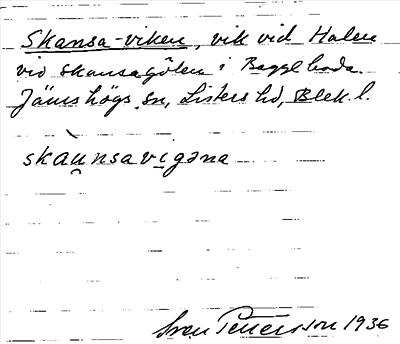 Skansa-viken, vik vid Halen
vid Skansagölen i Baggeboda.
Jämshögs sn, Listers hd, Blek. l.
skau̯nsavi̱gəna
Sven Pettersson 1936